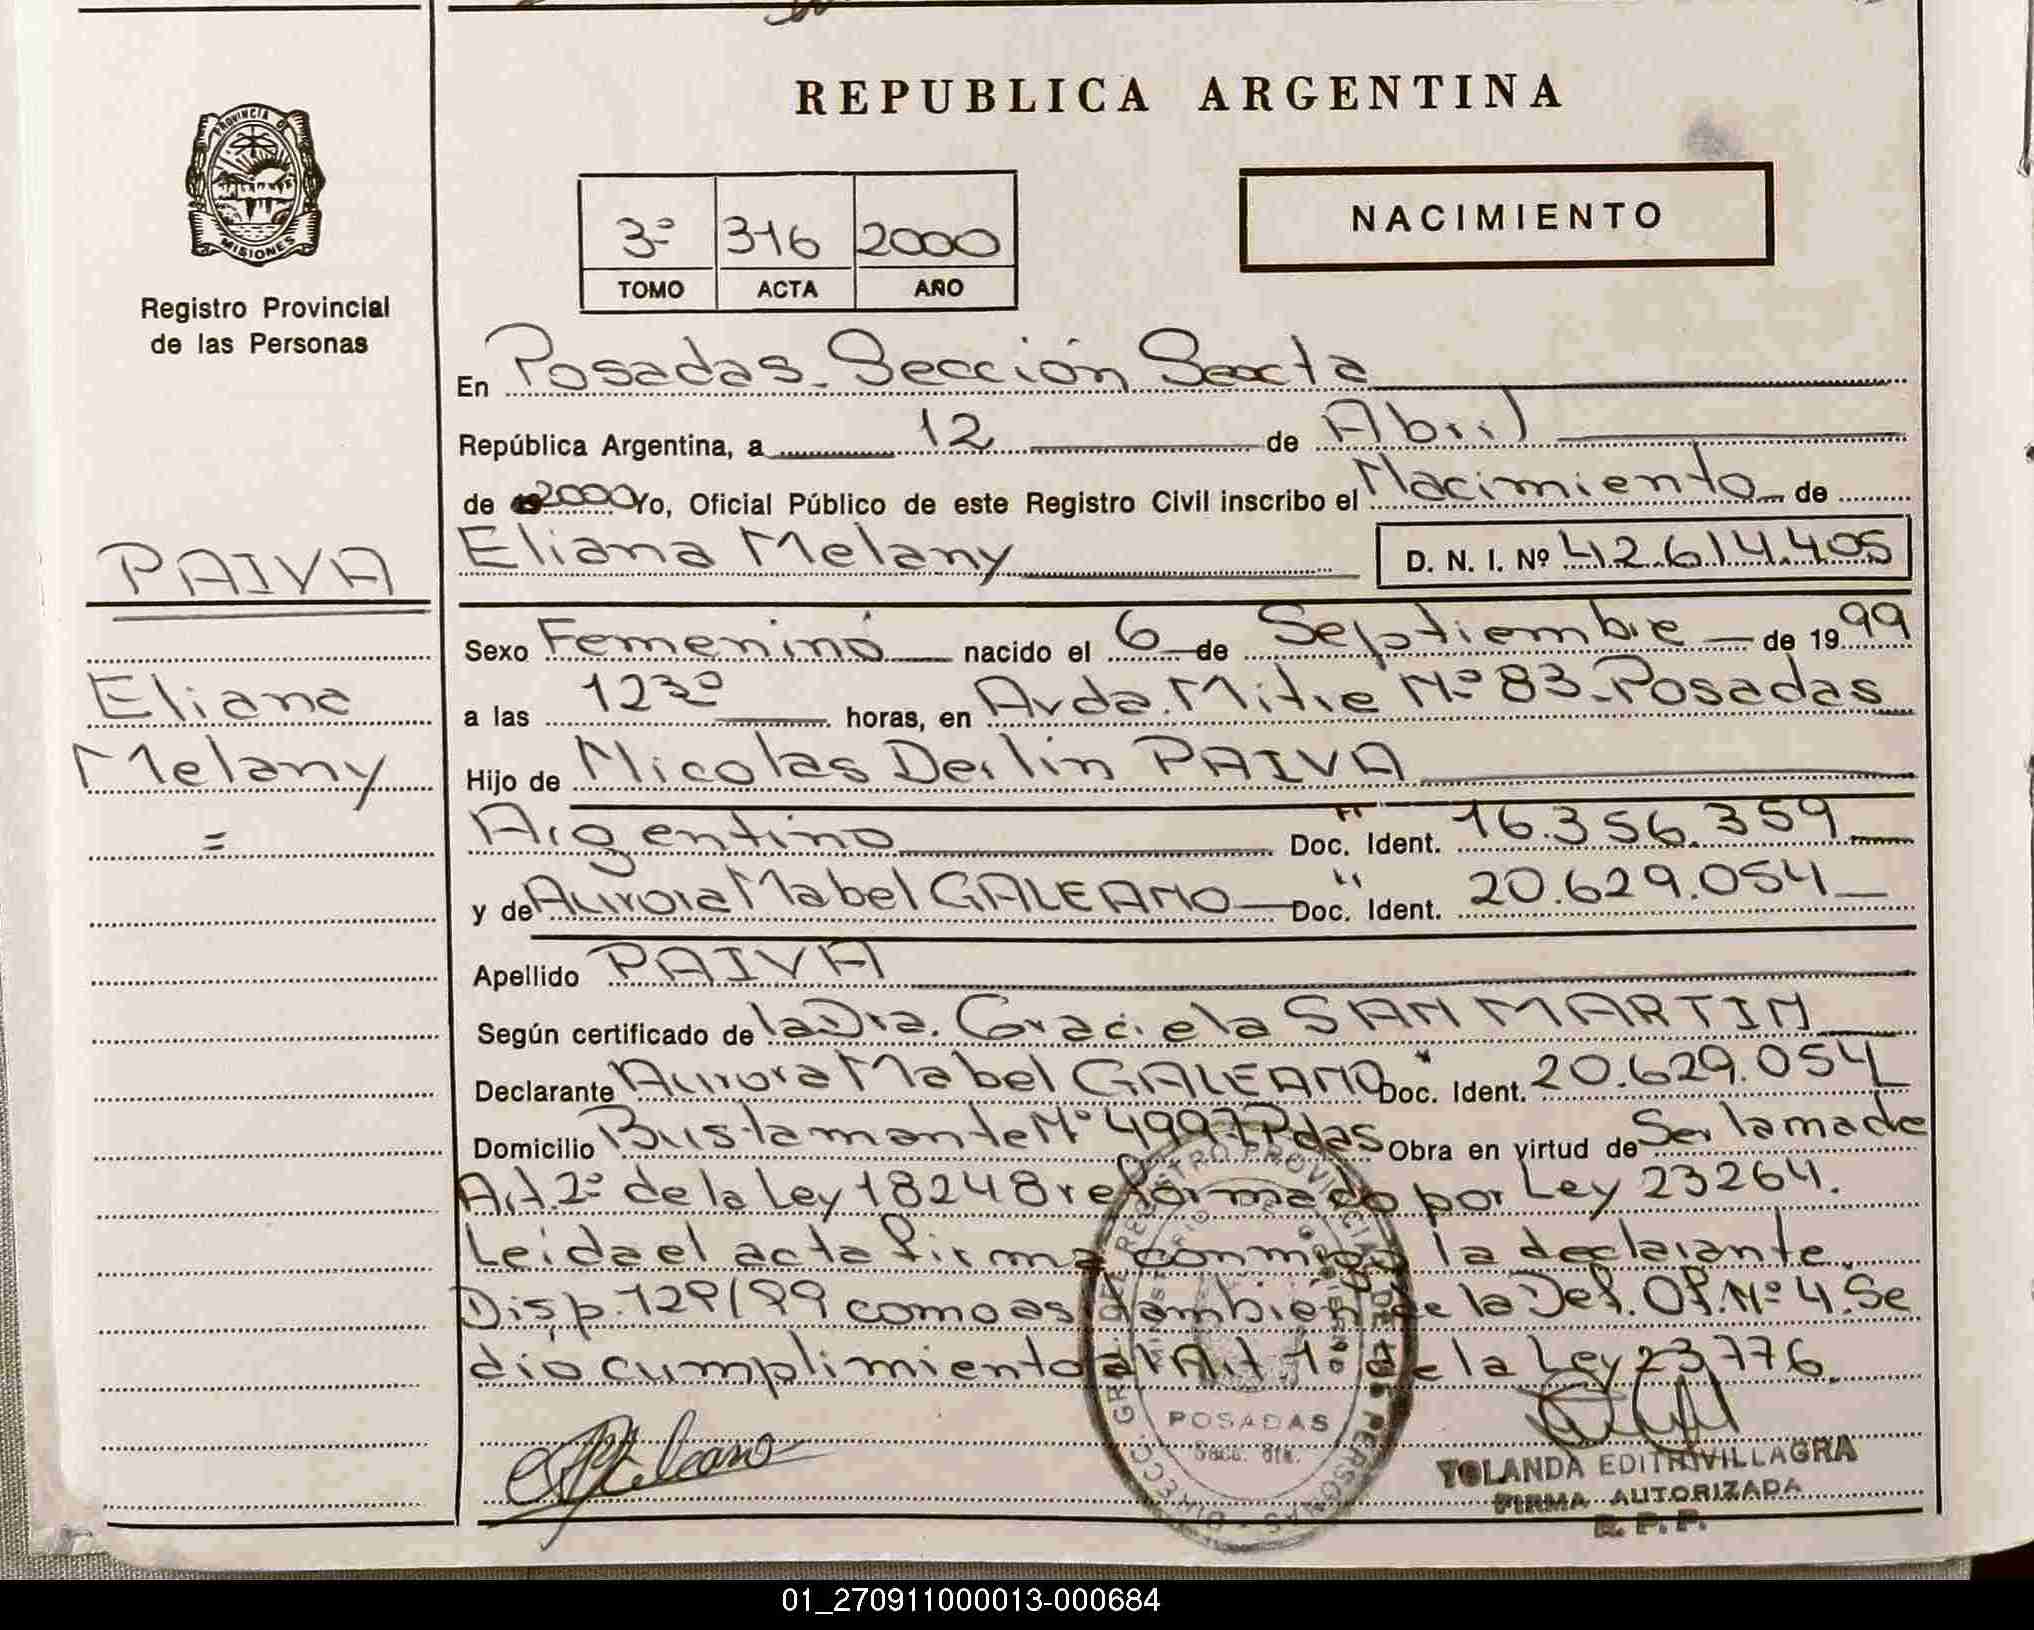 REPUBLICA ARGENTINA
PROVINCIA DE
MISIONES
Registro Provincial
de las Personas
3º 316 2000
TOMO ACTA AÑO
NACIMIENTO
En Posadas. Sección Sexta
República Argentina, a 12 de Abril
de 2000 Yo, Oficial Público de este Registro Civil inscribo el Nacimiento de
Eliana Melany D. N. I. Nº 42.614.405
PAIVA
Eliana
Melany
=
Sexo Femenino nacido el 6 de Septiembre de 1999
a las 12³⁰ horas, en Avda. Mitre Nº 83 - Posadas
Hijo de Nicolas Derlin PAIVA
Argentino " Doc. Ident. 16.356.359
y de Aurora Mabel GALEANO " Doc. Ident. 20.629.054
Apellido PAIVA
Según certificado de la Dra. Graciela SAN MARTIN
Declarante Aurora Mabel GALEANO " Doc. Ident. 20.629.054
Domicilio Bustamante Nº 4997 Pdas Obra en virtud de Ser la madre
Art 2º de la Ley 18248 reformado por Ley 23264.
Leida el acta firma conmigo la declarante
Disp. 129/99 como asi tambien de la Def. Of. Nº 4. Se
dio cumplimiento al Art 1º de la Ley 23776.
POSADAS
Secc. 6ta.
YOLANDA EDITH VILLAGRA
FIRMA AUTORIZADA
R. P. P.
01_270911000013-000684